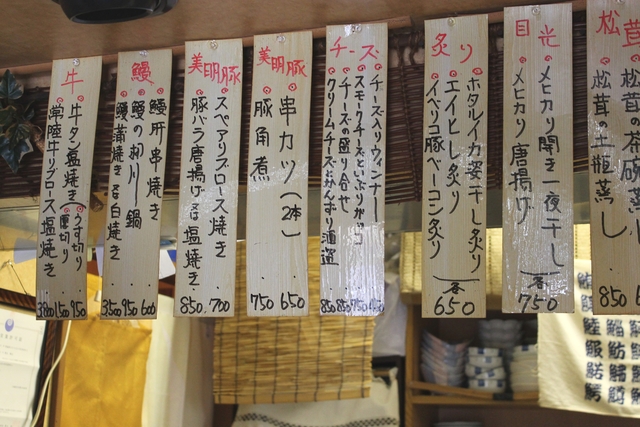 松茸
松茸の茶碗蒸し
松茸の土瓶蒸し
850
目光
メヒカリ開き一夜干し
メヒカリ唐揚げ
各
750
炙り
ホタルイカ姿干し炙り
エイヒレ炙り
イベリコ豚ベーコン炙り
各
650
チーズ
チーズ入りウィンナー
スモークチーズといぶりがっこ
チーズの盛り合せ
クリームチーズかんずり酒盗
850 850 750
美明豚
串カツ(2本)
豚角煮
750 650
美明豚
スペアリブロース焼き
豚バラ唐揚げ又は塩焼き
850 700
鰻
鰻肝串焼き
鰻の柳川鍋
鰻蒲焼き&白焼き
3,500 950 600
牛
牛タン塩焼き(うす切り
厚切り)
常陸牛リブロース塩焼き
3,800 1,500 950